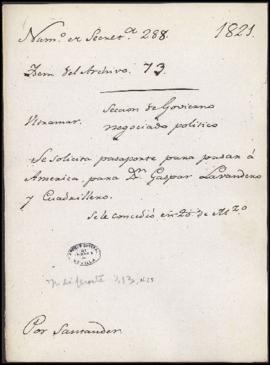 Num.º er Secret.ª 288. 1821.
Idem del Archivo. 73.
Seccion de Govierno
Ultramar. negociado politico
Se solicita pasaporte para pasar á
America, para Dⁿ Gaspar Lavandero
y Cuadrillero.
Se le concedió en 26 de Mzº
SEVILLA
Por Santander.